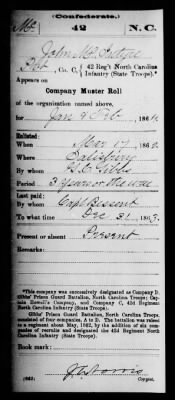 (Confederate.)
Mc 42 N.C.
John Mc
Pvt, Co. C, 42 Reg't North Carolina
Infantry (State Troops).*
Appears on
Company Muster Roll
of the organization named above,
for Jan & Feb, 1864.
Enlisted:
When Mar 17, 1862.
Where Salisbury
By whom Gibbs
Period 3 years or the war
Last paid:
By whom Capt
To what time Dec 31, 1863.
Present or absent Present
Remarks:
*This company was successively designated as Company D,
Gibbs' Prison Guard Battalion, North Carolina Troops; Captain
Howell's Company, and Company C, 42d Regiment
North Carolina Infantry (State Troops).
Gibbs' Prison Guard Battalion, North Carolina Troops,
consisted of four companies, A to D. The battalion was raised
to a regiment about May, 1862, by the addition of six companies
of recruits and designated the 42d Regiment North
Carolina Infantry (State Troops).
Book mark:
(642) Copyist.